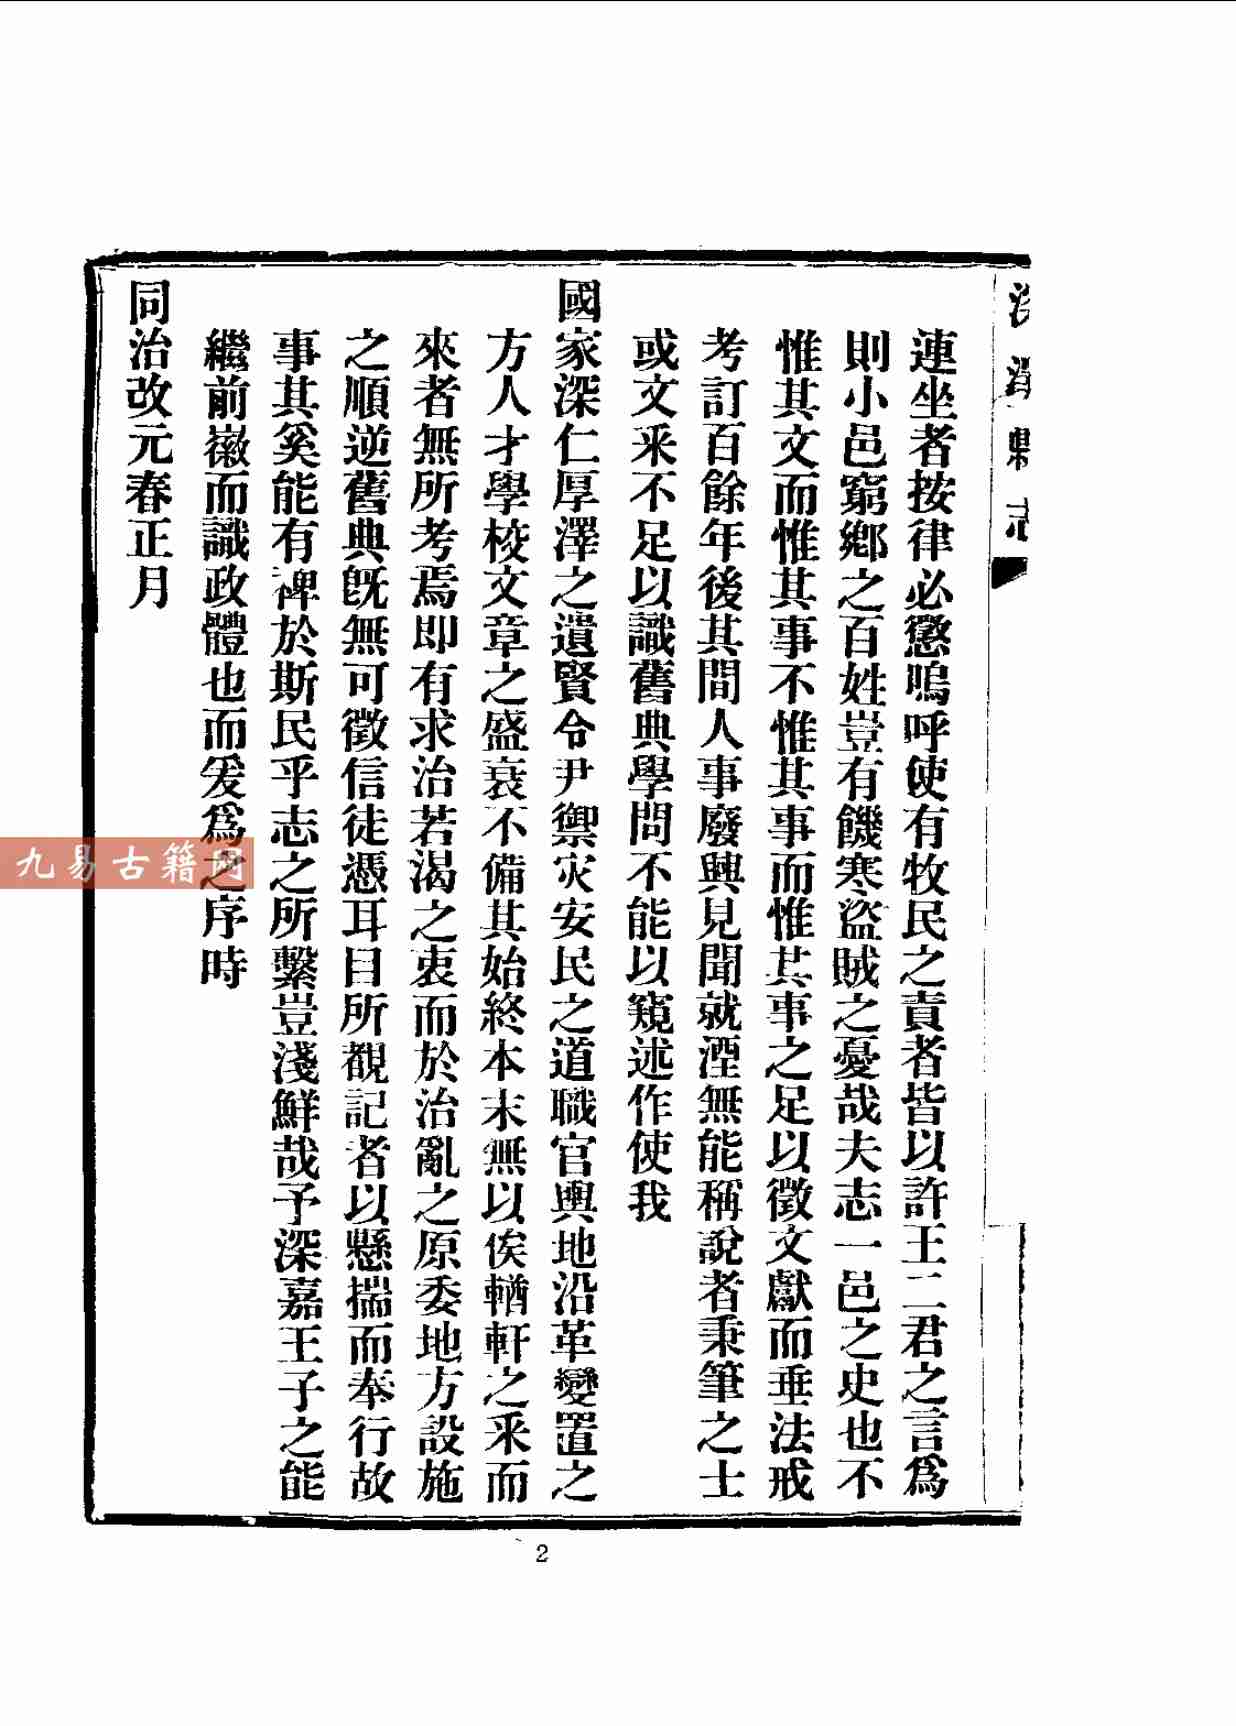 連坐者按律必懲嗚呼使有牧民之責者皆以許王二君之言爲
則小邑窮鄉之百姓豈有饑寒盜賊之憂哉夫志一邑之史也不
惟其文而惟其事不惟其事而惟其事之足以徵文獻而垂法戒
考訂百餘年後其間人事廢興見聞就湮無能稱說者秉筆之士
或文釆不足以識舊典學問不能以窺述作使我
國家深仁厚澤之遺賢令尹禦灾安民之道職官輿地沿革變置之
方人才學校文章之盛衰不備其始終本末無以俟輶軒之釆而
來者無所考焉即有求治若渴之衷而於治亂之原委地方設施
之順逆舊典旣無可徵信徒憑耳目所覩記者以懸揣而奉行故
事其奚能有裨於斯民乎志之所繫豈淺鮮哉予深嘉王子之能
繼前徽而識政體也而爰爲之序時
同治改元春正月
縣志
2
九易古籍网